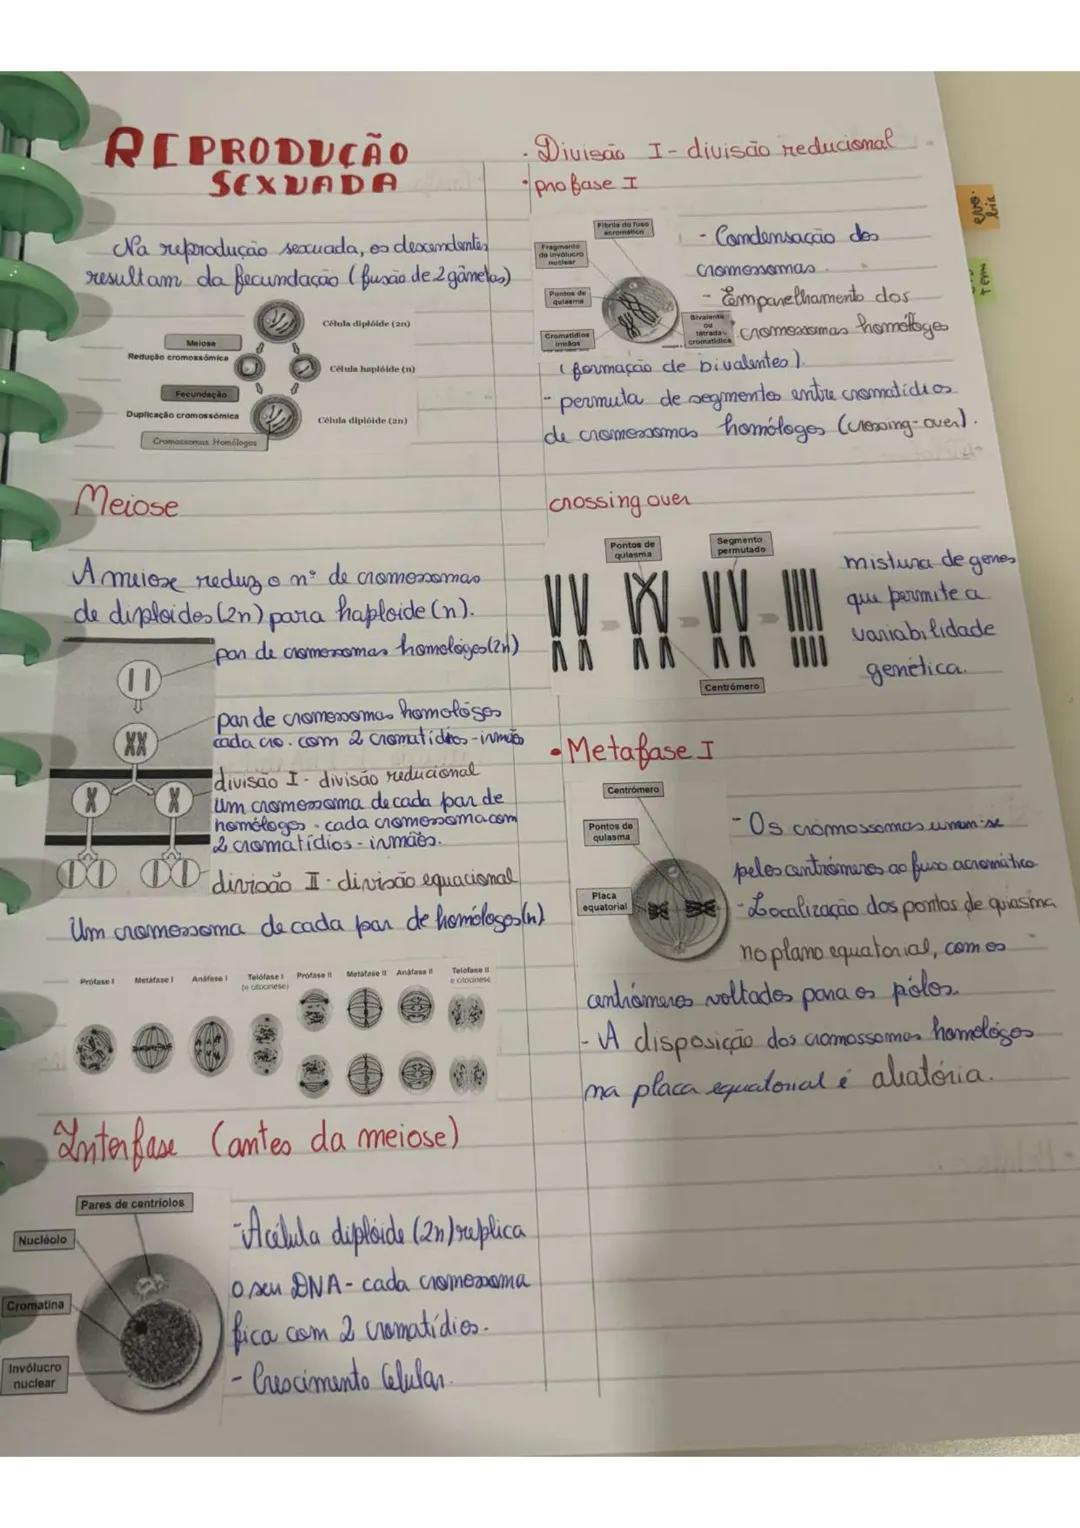 REPRODUÇÃO
SEXUADA
Na reprodução sexuada, os descendentes
resultam da fecundação (fusão de 2 gâmetas)
Célula diplóide (2n)
Meiose
Redução cromossómica
Célula haplóide (n)
Fecundação
Duplicação cromossómica
Célula diplóide (2n)
Cromossomas Homólogos
Meiose
A meiose reduz o nº de cromossomas
de diploides (2n) para haploide (n).
par de cromossomas homologos (2n)
par de cromossomas homologos
cada cro. com 2 cromatídios-irmãos
divisão I - divisão reducional
Um cromossoma de cada par de
homólogos - cada cromossoma com
2 cromatídios - irmãos.
divisão II - divisão equacional
Um cromossoma de cada par de homólogos (n)
Prófase I
Metáfase I
Anáfase I
Telófase I
(e citocinese)
Prófase II
Metáfase II
Anáfase II
Telófase II
e citocinese
Interfase (antes da meiose)
Pares de centríolos
Nucléolo
Cromatina
Invólucro
nuclear
- A célula diplóide (2n) replica
o seu DNA - cada cromossoma
fica com 2 cromatídios.
- Crescimento Celular.
• Divisão I - divisão reducional
• profase I
Fibrila do fuso
acromático
Fragmento
de invólucro
nuclear
Pontos de
quiasma
Cromatídios
irmãos
Bivalente
ou
tétrada
cromatídica
- Condensação dos
cromossomas.
- Emparelhamento dos
cromossomas homólogos
(formação de bivalentes).
- permuta de segmentos entre cromatídios
de cromossomas homólogos (crossing-over).
crossing over
Pontos de
quiasma
Segmento
permutado
Centrómero
mistura de genes
que permite a
variabilidade
genética.
• Metafase I
Centrómero
Pontos de
quiasma
Placa
equatorial
- Os cromossomas unem-se
pelos centrómeros ao fuso acromático
- Localização dos pontos de quiasma
no plano equatorial, com os
centrómeros voltados para os pólos.
- A disposição dos cromossomas homologos
na placa equatorial é aliatória.